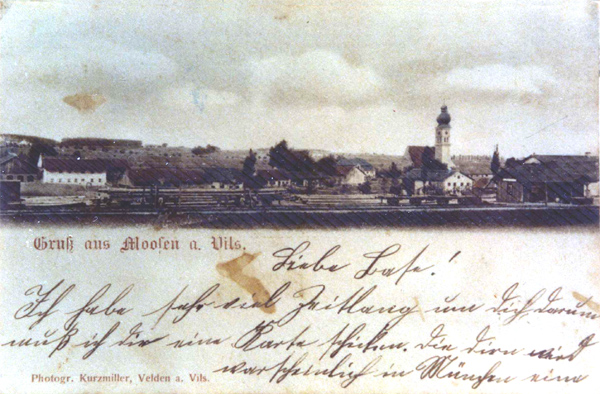 Gruß aus Moosen a. Vils.
Liebe Base!
Ich habe sehr viel Zeitlang um dich darum
muß ich dir eine Karte schicken. Die dirn wird
warscheinlich in München eine
Photogr. Kurzmiller, Velden a. Vils.